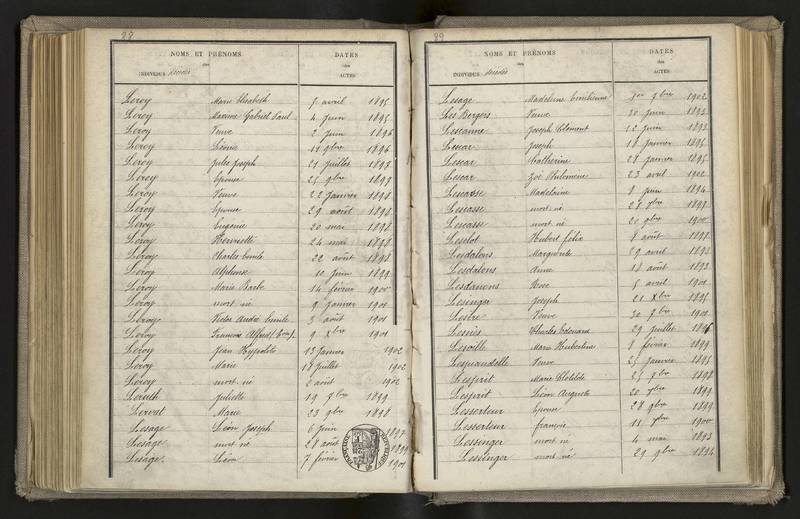 88
NOMS ET PRÉNOMS
des
INDIVIDUS décédés
DATES
des
ACTES
Leroy Marie Elisabeth 5 avril 1895
Leroy Maxime Gabriel Paul 4 juin 1895
Leroy Veuve 2 juin 1896
Leroy Léonie 18 9bre 1896
Leroy Jules Joseph 21 juillet 1897
Leroy Epouse 25 9bre 1897
Leroy Veuve 22 Janvier 1898
Leroy Epouse 29 août 1898
Leroy Eugénie 20 mai 1898
Leroy Henriette 24 mai 1898
Leroy Charles Emile 22 août 1898
Leroy Alphonse 10 juin 1899
Leroy Marie Barbe 14 février 1900
Leroy mort né 9 janvier 1901
Leroy Victor André Emile 3 août 1901
Leroy François Alfred 9 Xbre 1901
Leroy Jean Hyppolite 13 Janvier 1902
Leroy Marie 18 juillet 1902
Leroy mort né 2 août 1902
Juliette 19 9bre 1899
Lervat Marie 23 9bre 1898
Lesage Léon Joseph 6 juin 1897
Lesage mort né 28 août 1899
Lesage Léon 7 février 1901
89
NOMS ET PRÉNOMS
des
INDIVIDUS décédés
DATES
des
ACTES
Lesage Madeleine Emilienne 9bre 1902
Les Bergers Veuve 30 juin 1893
Lescanne Joseph Clément 12 juin 1893
Lescar Joseph 18 Janvier 1895
Lescar Catherine 28 janvier 1895
Lescar Zoé Philomène 23 avril 1902
Lescasse Madeleine 8 juin 1894
Lescasse mort né 28 1898
Lescasse mort né 20 9bre 1900
Leselot Hubert félix 8 août 1898
Lesdalons Marguerite 29 avril 1893
Lesdalons Anne 18 août 1893
Lesdanons Rose 5 avril 1901
Lesinger Joseph 21 Xbre 1895
Lesire Veuve 30 1901
Lesnes Charles Edouard 29 juillet 1896
Lesoille Marie Hubertine 8 février 1899
Lespandelle Veuve 25 Janvier 1895
Lesprit Marie Clotilde 25 9bre 1898
Lesprit Léon Auguste 20 1899
Lesserteur Epouse 28 9bre 1899
Lesserteur françois 11 1900
Lessinger mort né 4 mai 1893
Lessinger mort né 29 9bre 1894